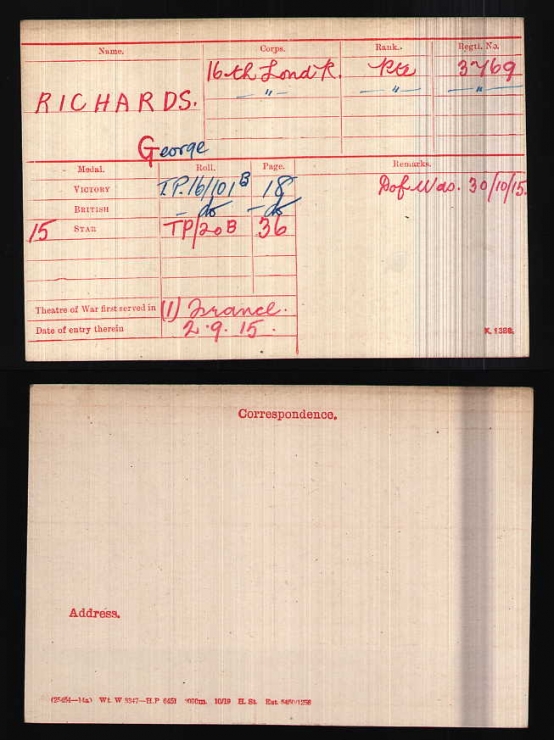 Name. Corps. Rank. Regtl. No.
16th Lond R. Pte 3769
RICHARDS. -"- -"- -"-
George
Medal. Roll. Page. Remarks.
VICTORY T.P.16/101 B 18 D of Wds. 30/10/15.
BRITISH - do - do
15 STAR TP/20 B 36
Theatre of War first served in (1) France.
Date of entry therein 2.9.15.
K. 1380.
Correspondence.
Address.
Wt. W 5347—H.P 10/19 H. St.